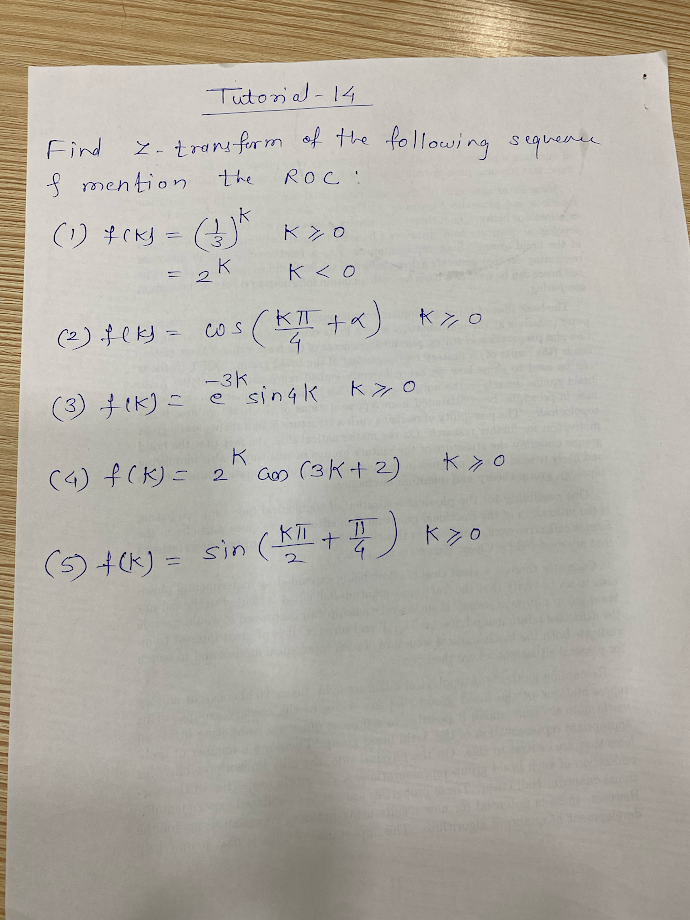 Tutorial-14
Find Z-transform of the following sequence
& mention the ROC :
(1) f(K) = (1/3)^K K ⩾ 0
= 2^K K < 0
(2) f(K) = cos (Kπ/4 + α) K ⩾ 0
(3) f(K) = e^-3K sin4K K ⩾ 0
(4) f(K) = 2^K cos (3K+2) K ⩾ 0
(5) f(K) = sin (Kπ/2 + π/4) K ⩾ 0